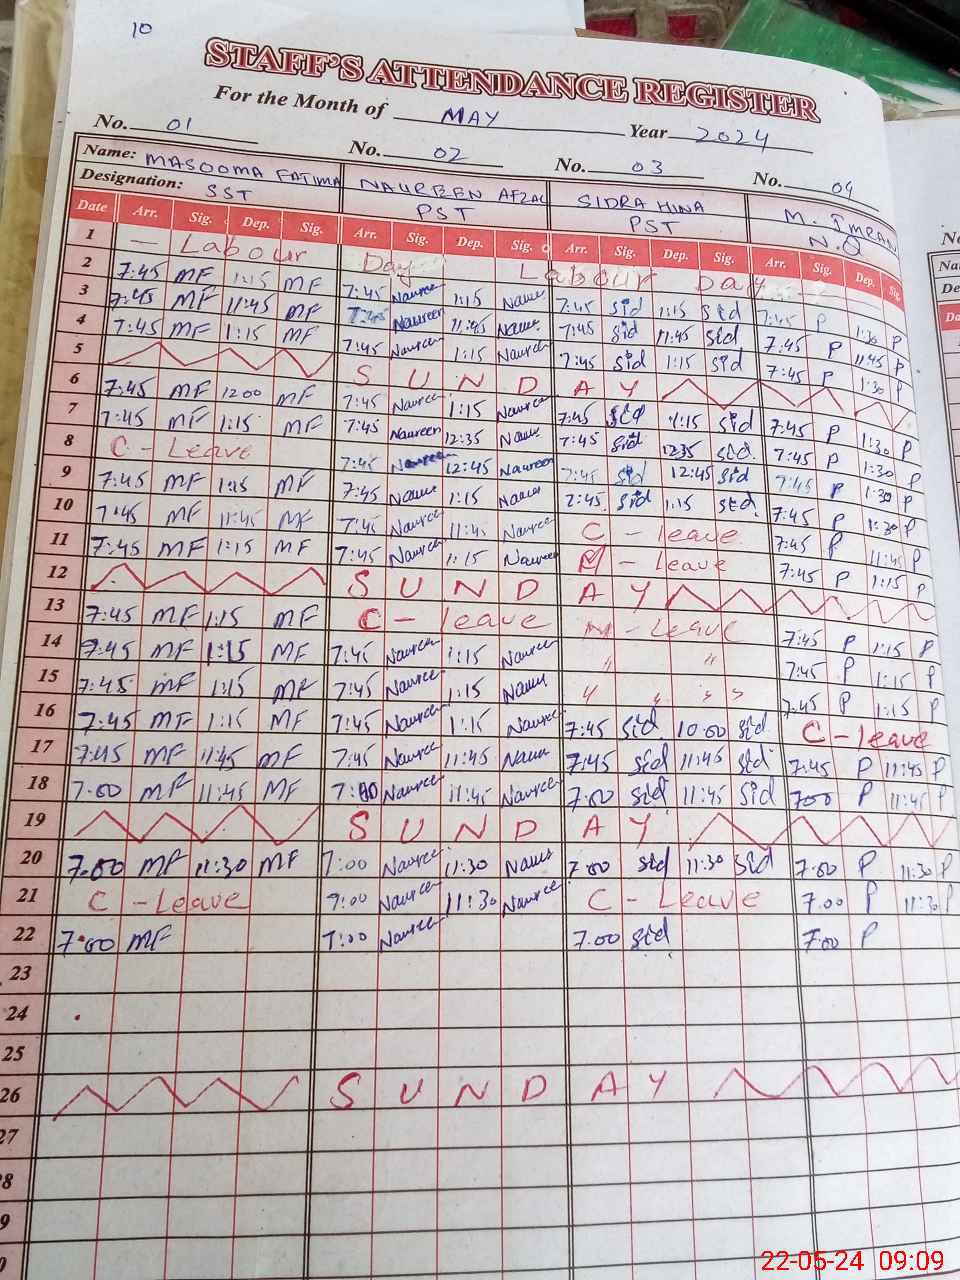 10
STAFF'S ATTENDANCE REGISTER
For the Month of MAY Year 2024
No. 01 No. 02 No. 03 No. 04
Name: MASOOMA FATIMA NAUREEN AFZAL SIDRA HINA M. IMRAN
Designation: SST PST PST N.Q
Date Arr. Sig. Dep. Sig. Arr. Sig. Dep. Sig. Arr. Sig. Dep. Sig. Arr. Sig. Dep. Sig.
1 — Labour Day Labour Day —
2 7:45 MF 1:15 MF 7:45 Naureen 1:15 7:45 Sid 1:15 Sid 7:45 P 1:30 P
3 7:45 MF 11:45 MF 7:45 Naureen 11:45 7:45 Sid 11:45 Sid 7:45 P 11:45 P
4 7:45 MF 1:15 MF 7:45 Naureen 1:15 Naureen 7:45 Sid 1:15 Sid 7:45 P 1:30 P
5 SUNDAY
6 7:45 MF 1200 MF 7:45 Naureen 1:15 Naureen 7:45 Sid 1:15 Sid 7:45 P 1:30 P
7 7:45 MF 1:15 MF 7:45 Naureen 12:35 7:45 Sid 1235 Sid 7:45 P 1:30 P
8 C - Leave 7:45 Naureen 12:45 Naureen 7:45 Sid 12:45 Sid 7:45 P 1:30 P
9 7:45 MF 1:15 MF 7:45 1:15 7:45 Sid 1:15 Sid 7:45 P 1:30 P
10 7:45 MF 11:45 MF 7:45 Naureen 11:45 Naureen C - leave 7:45 P 11:45 P
11 7:45 MF 1:15 MF 7:45 Naureen 1:15 Naureen M - leave 7:45 P 1:15 P
12 SUNDAY
13 7:45 MF 1:15 MF C - leave M - Leave 7:45 P 1:15 P
14 7:45 MF 1:15 MF 7:45 Naureen 1:15 Naureen " " 7:45 P 1:15 P
15 7:45 MF 1:15 MF 7:45 Naureen 1:15 " " " 7:45 P 1:15 P
16 7:45 MF 1:15 MF 7:45 Naureen 1:15 Naureen 7:45 Sid 10:00 Sid C - leave
17 7:45 MF 11:45 MF 7:45 Naureen 11:45 7:45 Sid 11:45 Sid 7:45 P 11:45 P
18 7:00 MF 11:45 MF 7:00 Naureen 11:45 Naureen 7:00 Sid 11:45 Sid 700 P 11:45 P
19 SUNDAY
20 7:00 MF 11:30 MF 7:00 Naureen 11:30 7:00 Sid 11:30 Sid 7:00 P 11:30 P
21 C - Leave 7:00 Naureen 11:30 Naureen C - Leave 7.00 P 11:30 P
22 7:00 MF 7:00 Naureen 7.00 Sid 7:00 P
23
24
25
26 SUNDAY
27
8
9
22-05-24 09:09